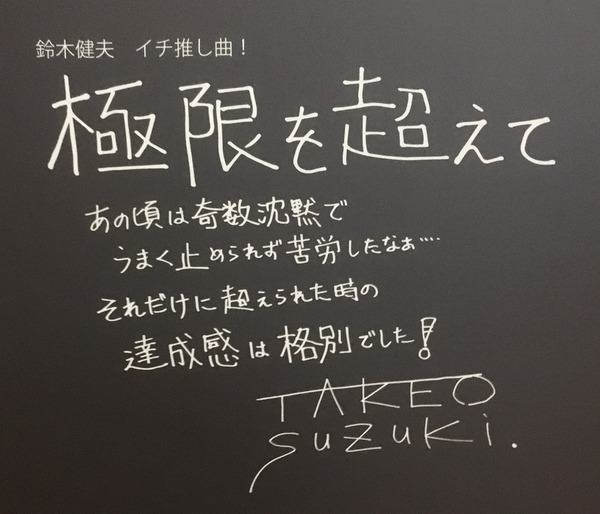 鈴木健夫　イチ推し曲！
極限を超えて
あの頃は奇数沈黙で
うまく止められず苦労したなぁ……
それだけに超えられた時の
達成感は格別でした！
TAKEO
SuZuKi.